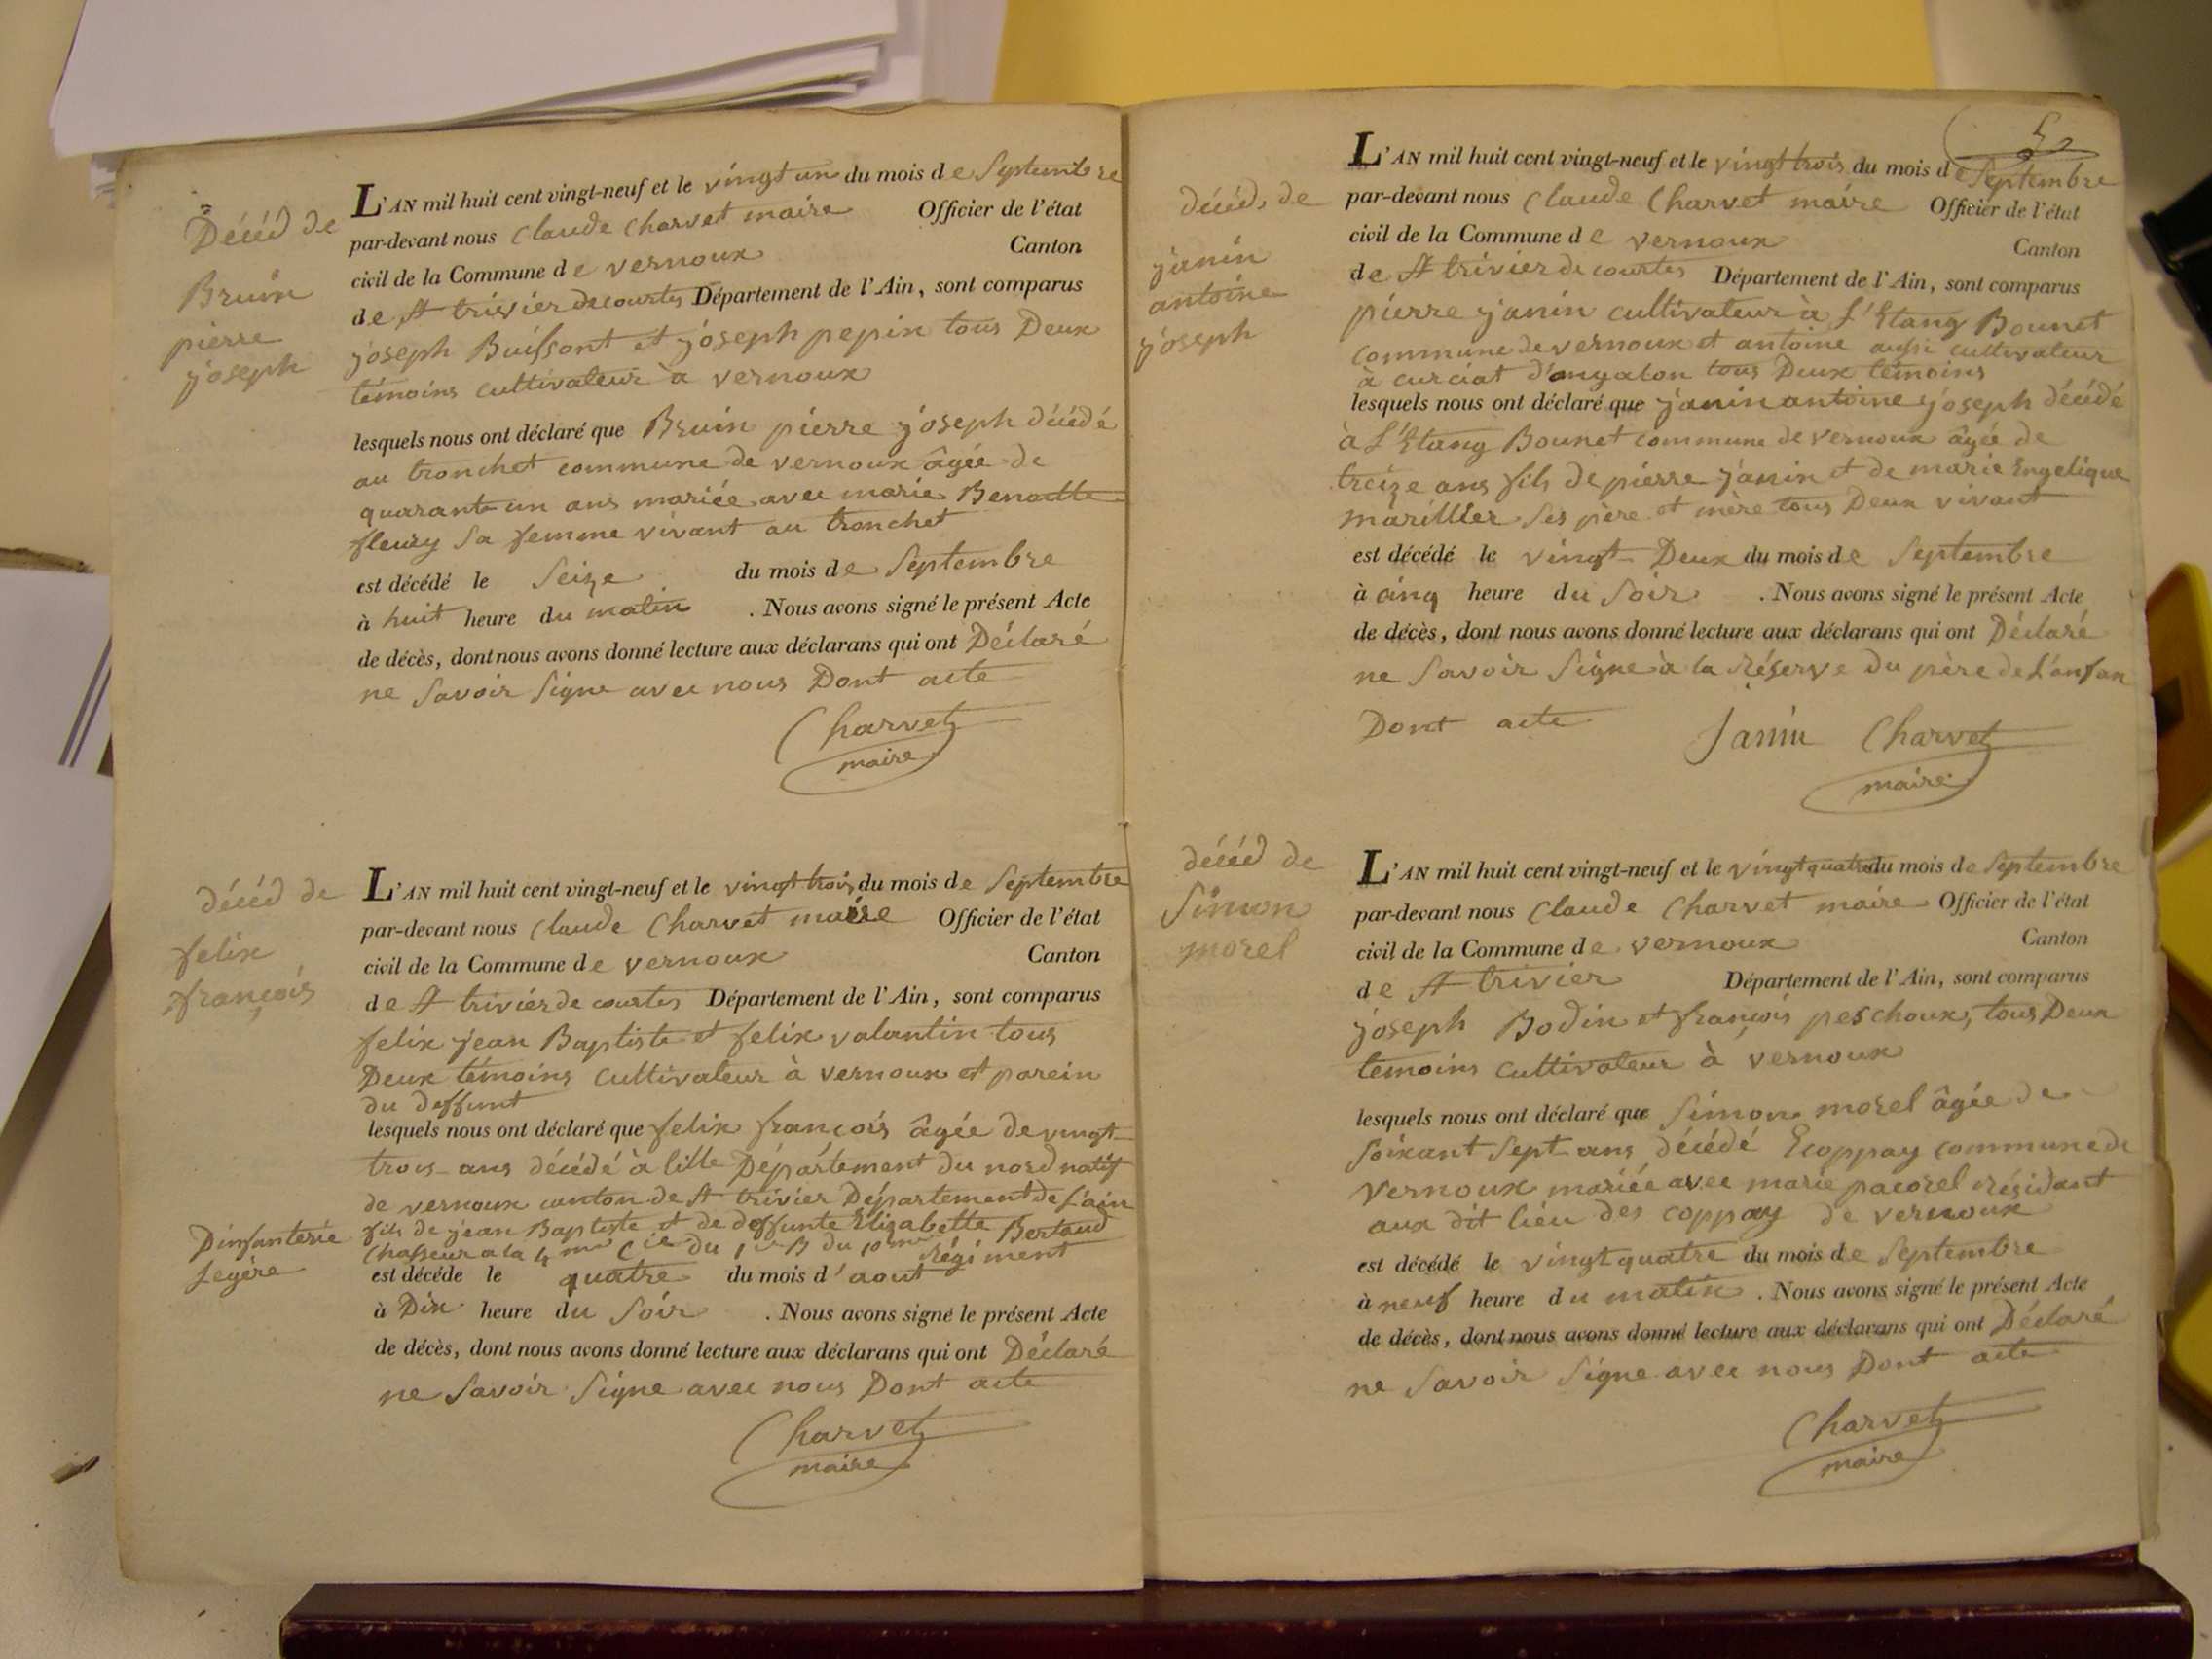 Décéd de
Bruin
pierre
joseph
L'AN mil huit cent vingt-neuf et le vingt un du mois de Septembre
par-devant nous Claude Charvet maire Officier de l'état
civil de la Commune de vernoux Canton
de St trivier de courtes Département de l'Ain, sont comparus
joseph Buissont et joseph pepin tous Deux
témoins cultivateur à vernoux
lesquels nous ont déclaré que Bruin pierre joseph décédé
au tronchet commune de vernoux âgée de
quarante un ans mariée avec marie Benoitte
fleury Sa femme vivant au tronchet
est décédé le Seize du mois de Septembre
à huit heure du matin . Nous avons signé le présent Acte
de décès, dont nous avons donné lecture aux déclarans qui ont Déclaré
ne Savoir Signe avec nous Dont acte
Charvet
maire
décéd de
felix
françois
L'AN mil huit cent vingt-neuf et le vingt trois du mois de Septembre
par-devant nous Claude Charvet maire Officier de l'état
civil de la Commune de vernoux Canton
de St trivier de courtes Département de l'Ain, sont comparus
felix jean Baptiste et felix valantin tous
Deux témoins Cultivateur à vernoux et parein
du deffunt
lesquels nous ont déclaré que felix françois âgée de vingt
trois ans décédé à lille Département du nord natif
de vernoux canton de St trivier Département de L'ain
fils de jean Baptiste et de deffunte Elizabette Bertaud
Chasseur a la 4me Cie du 1er B du 10me Régiment
Dinfanterie
Legère
est décédé le quatre du mois d'aout
à Dix heure du Soir . Nous avons signé le présent Acte
de décès, dont nous avons donné lecture aux déclarans qui ont Déclaré
ne Savoir Signe avec nous Dont acte
Charvet
maire
décéd, de
janin
antoine
joseph
L'AN mil huit cent vingt-neuf et le vingt trois du mois de Septembre
par-devant nous Claude Charvet maire Officier de l'état
civil de la Commune de vernoux Canton
de St trivier de courtes Département de l'Ain, sont comparus
pierre janin cultivateur à L'Etang Bounet
commune de vernoux et antoine aussi cultivateur
à curciat d'ongalon tous Deux témoins
lesquels nous ont déclaré que janin antoine joseph décédé
à L'Etang Bounet commune de vernoux âgée de
treize ans fils de pierre janin et de marie Engelique
marillier Ses père et mère tous Deux vivant
est décédé le vingt Deux du mois de Septembre
à cinq heure du Soir . Nous avons signé le présent Acte
de décès, dont nous avons donné lecture aux déclarans qui ont Déclaré
ne Savoir Signe à la Réserve du père de L'anfan
Dont acte
Janin Charvet
maire
décéd de
Simon
morel
L'AN mil huit cent vingt-neuf et le vingt quatre du mois de Septembre
par-devant nous Claude Charvet maire Officier de l'état
civil de la Commune de vernoux Canton
de St trivier Département de l'Ain, sont comparus
joseph Bodin et françois peschoux, tous Deux
temoins cultivateur à vernoux
lesquels nous ont déclaré que Simon morel âgée de
Soixant Sept ans décédé Ecoppay commune de
Vernoux mariée avec marie pacorel résidant
aux dit lieu des coppay de vernoux
est décédé le vingt quatre du mois de Septembre
à neuf heure du matin . Nous avons signé le présent Acte
de décès, dont nous avons donné lecture aux déclarans qui ont Déclaré
ne Savoir Signe avec nous Dont acte
Charvet
maire